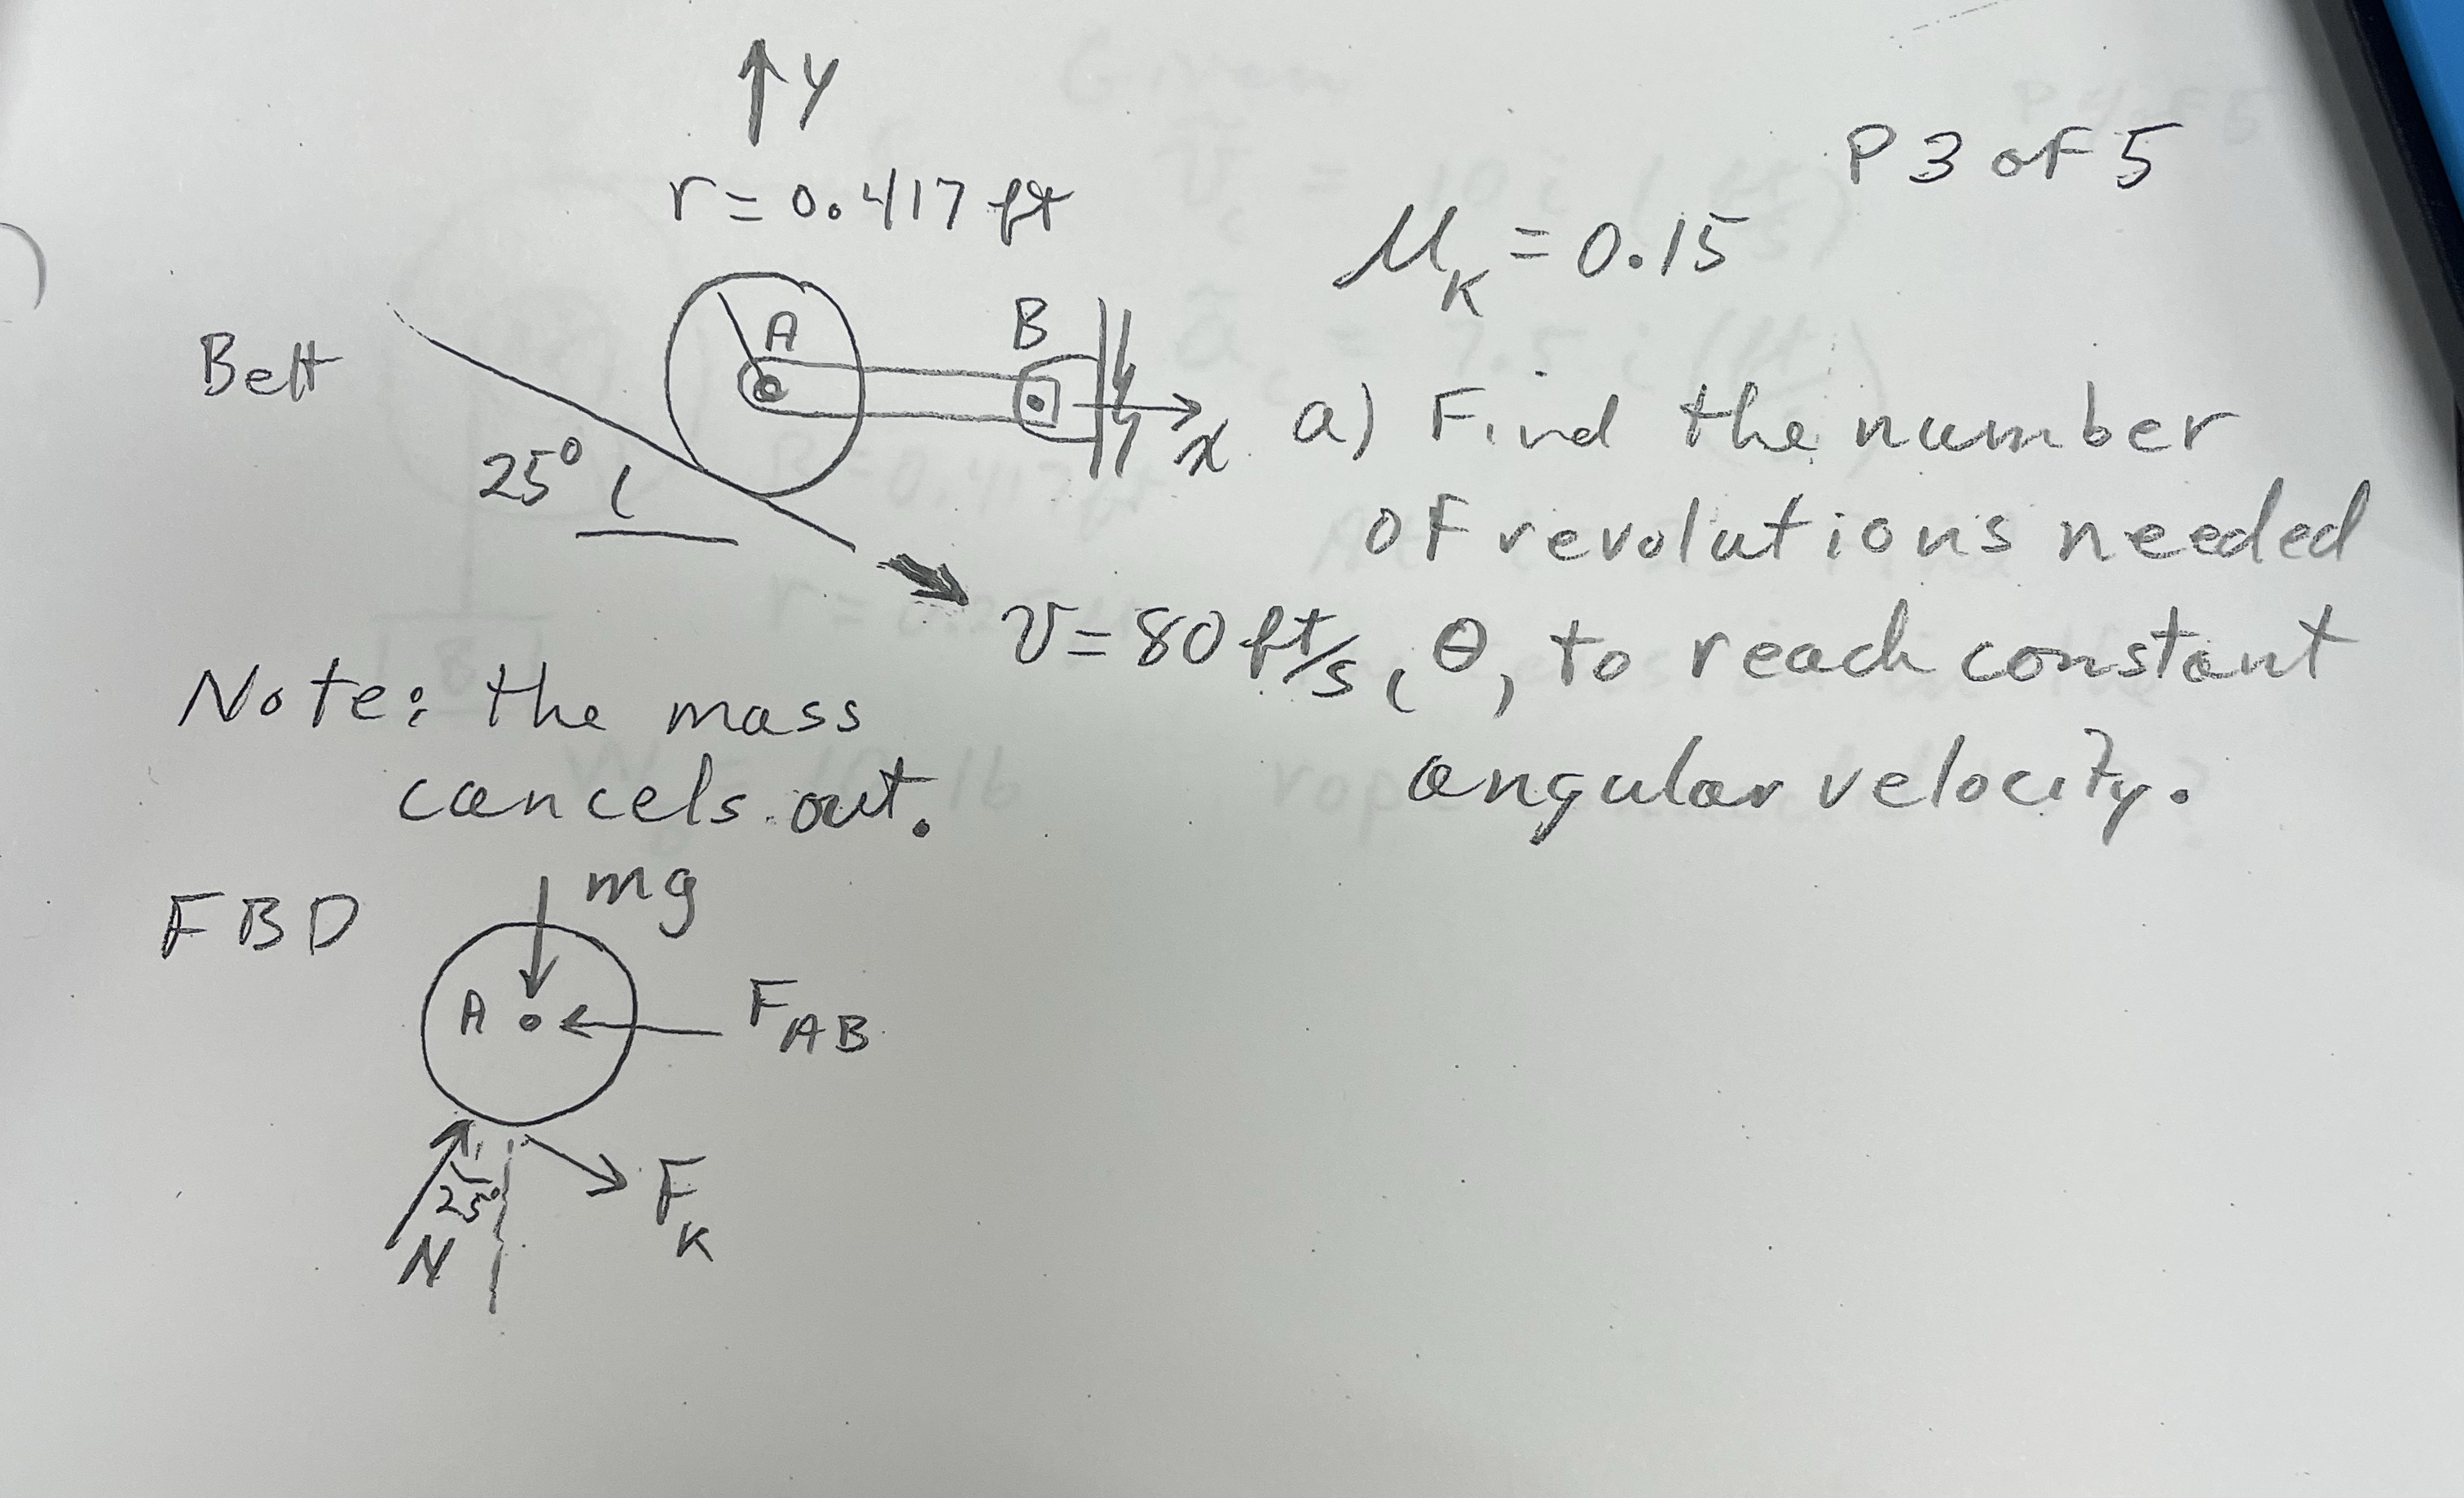 y
P 3 of 5
r = 0.417 ft
μ_K = 0.15
A
B
Belt
x
a) Find the number
25°
of revolutions needed
v = 80 ft/s, θ, to reach constant
angular velocity.
Note: the mass
cancels out.
mg
FBD
A
F_AB
25°
F_K
N